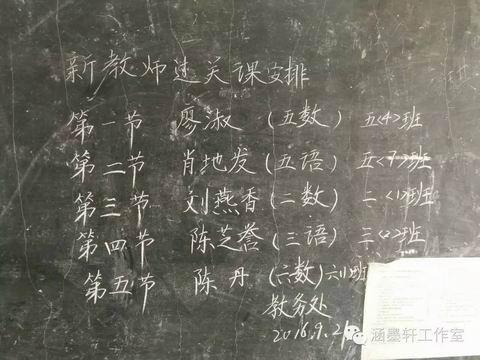 新教师过关课安排
第一节 廖淑 (五数) 五<4>班
第二节 肖地发 (五语) 五<7>班
第三节 刘燕香 (二数) 二<1>班
第四节 陈芝誉 (三语) 三<2>班
第五节 陈丹 (六数) 六(1)班
教务处
2016.9.2
涵墨轩工作室